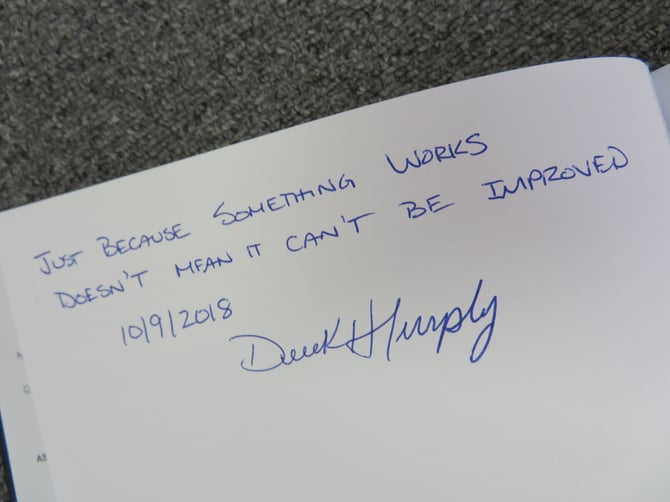 JUST BECAUSE SOMETHING WORKS
DOESN'T MEAN IT CAN'T BE IMPROVED
10/9/2018
Derek H